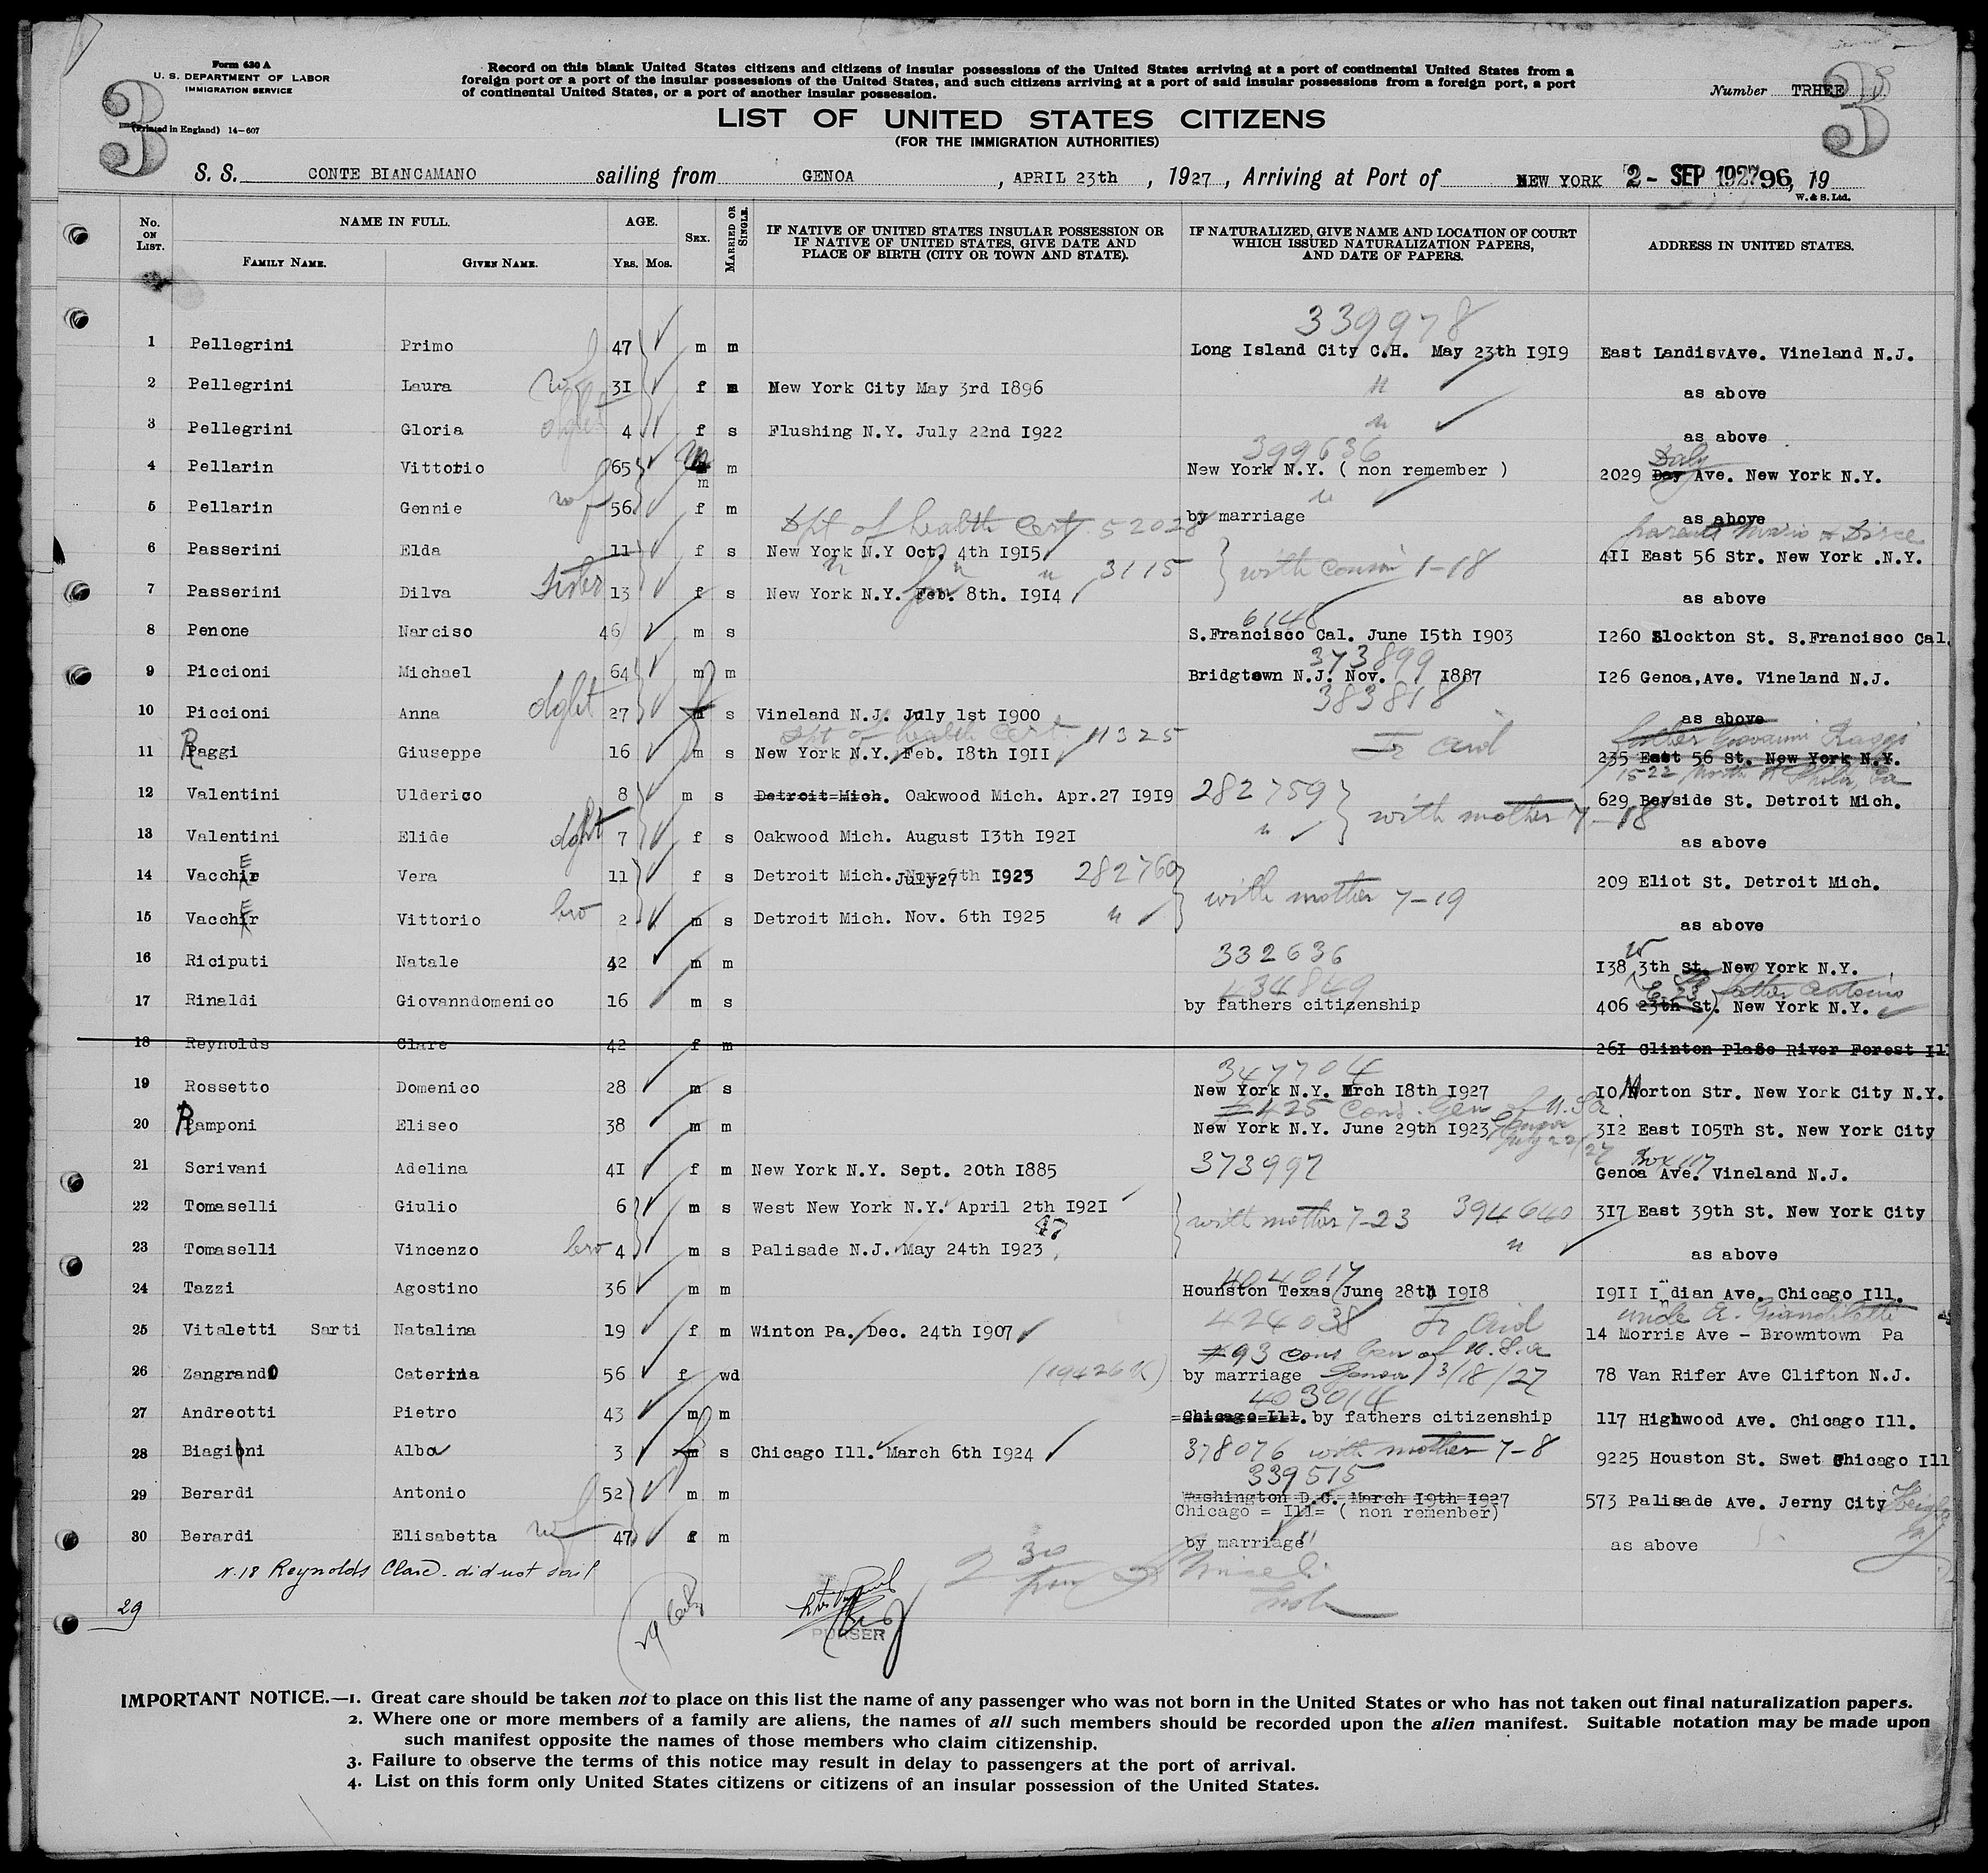 Form 630 A
U. S. DEPARTMENT OF LABOR
IMMIGRATION SERVICE
(Printed in England) 14-607
3
Record on this blank United States citizens and citizens of insular possessions of the United States arriving at a port of continental United States from a
foreign port or a port of the insular possessions of the United States, and such citizens arriving at a port of said insular possessions from a foreign port, a port
of continental United States, or a port of another insular possession.
Number TRHEE
3
LIST OF UNITED STATES CITIZENS
(FOR THE IMMIGRATION AUTHORITIES)
S. S. CONTE BIANCAMANO sailing from GENOA, APRIL 23th, 1927, Arriving at Port of NEW YORK 2- SEP 192796, 19
W. & S. Ltd.
No. ON LIST. NAME IN FULL. FAMILY NAME. GIVEN NAME. AGE. YRS. MOS. SEX. MARRIED OR SINGLE. IF NATIVE OF UNITED STATES INSULAR POSSESSION OR IF NATIVE OF UNITED STATES, GIVE DATE AND PLACE OF BIRTH (CITY OR TOWN AND STATE). IF NATURALIZED, GIVE NAME AND LOCATION OF COURT WHICH ISSUED NATURALIZATION PAPERS, AND DATE OF PAPERS. ADDRESS IN UNITED STATES.
339978
1 Pellegrini Primo 47 m m Long Island City C.H. May 23th 1919 East LandisvAve. Vineland N.J.
2 Pellegrini Laura wf 31 f m New York City May 3rd 1896 " as above
3 Pellegrini Gloria dght 4 f s Flushing N.Y. July 22nd 1922 " as above
399636 Daly
4 Pellarin Vittorio 65 m m New York N.Y. ( non remember ) 2029 Day Ave. New York N.Y.
5 Pellarin Gennie wf 56 f m by marriage as above
Dpt of health Cert. 52028 parents Mario & Dirce
6 Passerini Elda 11 f s New York N.Y Oct. 4th 1915 411 East 56 Str. New York .N.Y.
" " " 3115 with cousin 1-18
7 Passerini Dilva Sister 13 f s New York N.Y. Feb. 8th. 1914 as above
6148
8 Penone Narciso 46 m s S.Francisco Cal. June 15th 1903 1260 Slockton St. S.Francisco Cal.
373899
9 Piccioni Michael 64 m m Bridgtown N.J. Nov. 1887 126 Genoa,Ave. Vineland N.J.
383818
10 Piccioni Anna dght 27 f s Vineland N.J. July 1st 1900 as above
Dpt of health Cert. 11325 Tr aid father Giovanni Raggi
11 Raggi Giuseppe 16 m s New York N.Y. Feb. 18th 1911 235 East 56 St. New York N.Y.
1522 North
12 Valentini Ulderico 8 m s Detroit Mich. Oakwood Mich. Apr.27 1919 282759 629 Beyside St. Detroit Mich.
with mother 7-18
13 Valentini Elide dght 7 f s Oakwood Mich. August 13th 1921 " as above
14 VacchiEr Vera 11 f s Detroit Mich. July27 1923 282760 209 Eliot St. Detroit Mich.
with mother 7-19
15 VacchEr Vittorio bro 2 m s Detroit Mich. Nov. 6th 1925 " as above
16 Riciputi Natale 42 m m 332636 138 W 3th St. New York N.Y.
434849 E. 23 father Antonio
17 Rinaldi Giovanndomenico 16 m s by fathers citizenship 406 23th St. New York N.Y.
18 Reynolds Clare 42 f m 261 Clinton Place River Forest Ill
347704
19 Rossetto Domenico 28 m s New York N.Y. Mrch 18th 1927 10 Morton Str. New York City N.Y.
#425 Cons. Gen of U.S.A.
20 Ramponi Eliseo 38 m m New York N.Y. June 29th 1923 Genova July 22/27 312 East 105Th St. New York City
Box 117
21 Scrivani Adelina 41 f m New York N.Y. Sept. 20th 1885 373997 Genoa Ave. Vineland N.J.
22 Tomaselli Giulio 6 m s West New York N.Y. April 2th 1921 with mother 7-23 394640 317 East 39th St. New York City
47
23 Tomaselli Vincenzo bro 4 m s Palisade N.J. May 24th 1923 " as above
404017
24 Tazzi Agostino 36 m m Hounston Texas June 28th 1918 1911 Indian Ave. Chicago Ill.
424038 Tr aid uncle A.
25 Vitaletti Sarti Natalina 19 f m Winton Pa. Dec. 24th 1907 14 Morris Ave - Browntown Pa
#93 Cons Gen of U.S.A
26 Zangrando Caterina 56 f wd (19426 K) by marriage Genova 3/18/27 78 Van Rifer Ave Clifton N.J.
403014
27 Andreotti Pietro 43 m m Chicago Ill. by fathers citizenship 117 Highwood Ave. Chicago Ill.
28 Biagioni Alba 3 f s Chicago Ill. March 6th 1924 378076 with mother 7-8 9225 Houston St. Swet Chicago Ill
339515
29 Berardi Antonio 52 m m Washington D.C. March 19th 1927 573 Palisade Ave. Jerny City
Chicago = Ill= ( non remenber)
30 Berardi Elisabetta wf 47 f m by marriage as above
N. 18 Reynolds Clare did not sail
29
PURSER
IMPORTANT NOTICE.—1. Great care should be taken not to place on this list the name of any passenger who was not born in the United States or who has not taken out final naturalization papers.
2. Where one or more members of a family are aliens, the names of all such members should be recorded upon the alien manifest. Suitable notation may be made upon
such manifest opposite the names of those members who claim citizenship.
3. Failure to observe the terms of this notice may result in delay to passengers at the port of arrival.
4. List on this form only United States citizens or citizens of an insular possession of the United States.